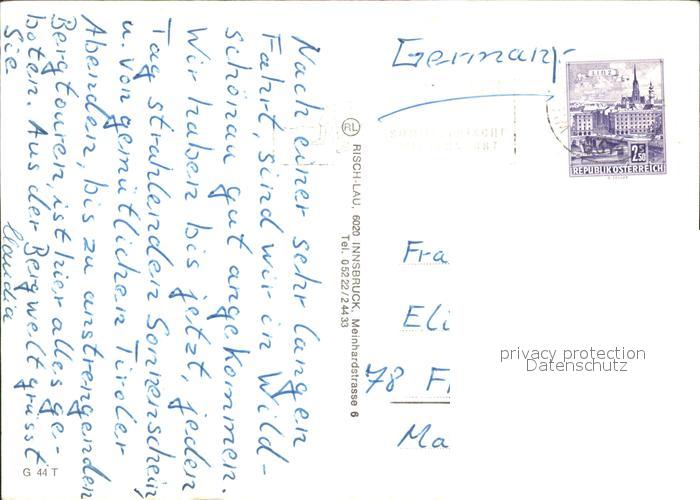 Nach einer sehr langen
Fahrt, sind wir in Wild-
schönau gut angekommen.
Wir haben bis jetzt, jeden
Tag strahlenden Sonnenschein,
u. von gemütlichen Tiroler
Abenden, bis zu anstrengenden
Bergtouren, ist hier alles ge-
boten. Aus der Bergwelt grüsst
Sie
Claudia
G 44 T
RL RISCH-LAU, 6020 INNSBRUCK, Meinhardstrasse 6
Tel. 05222/24433
Germany
LINZ
2.50
REPUBLIK ÖSTERREICH
Fra
Eli
78 F
Ma
privacy protection
Datenschutz